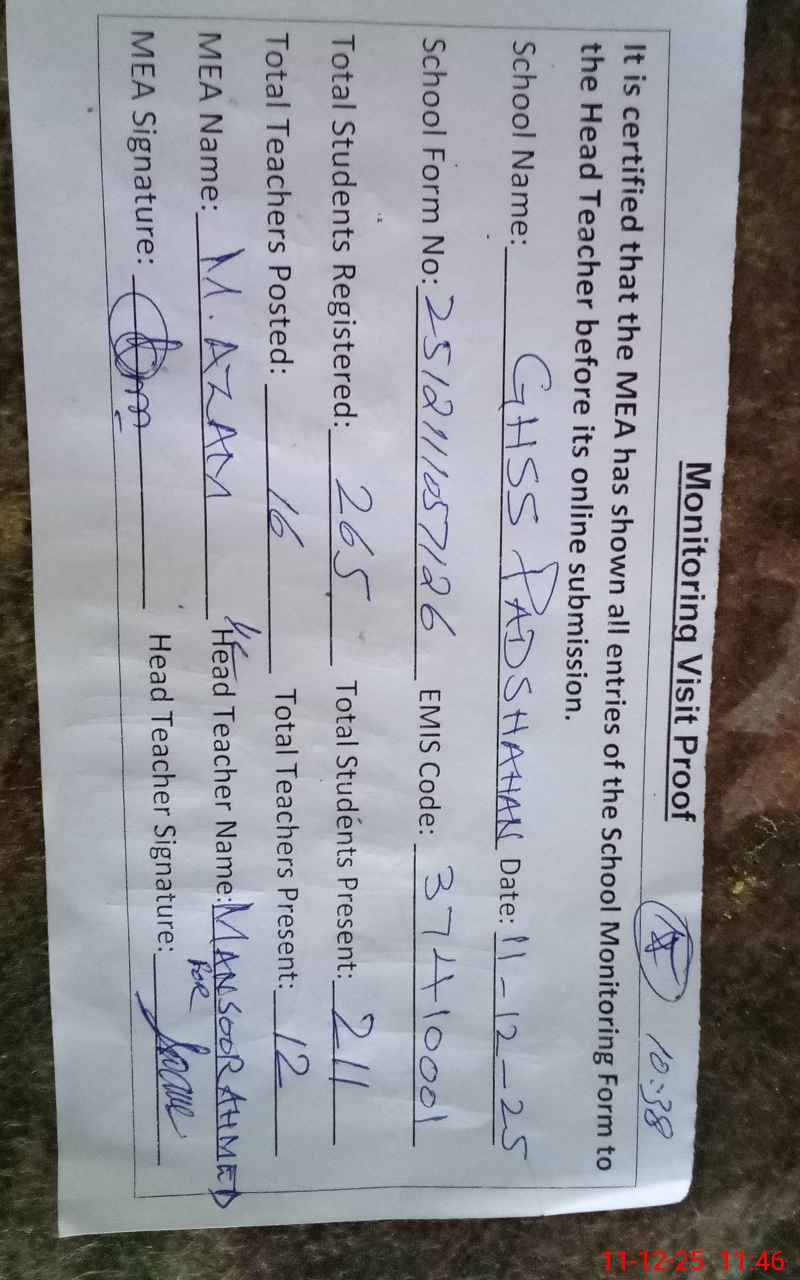 Monitoring Visit Proof
10:38
It is certified that the MEA has shown all entries of the School Monitoring Form to
the Head Teacher before its online submission.
School Name: GHSS PADSHAHAN Date: 11-12-25
School Form No: 251211057126 EMIS Code: 37410001
Total Students Registered: 265 Total Students Present: 211
Total Teachers Posted: 16 Total Teachers Present: 12
MEA Name: M. AZAM Head Teacher Name: MANSOOR AHMED
FOR
MEA Signature: Head Teacher Signature:
11-12-25 11:46